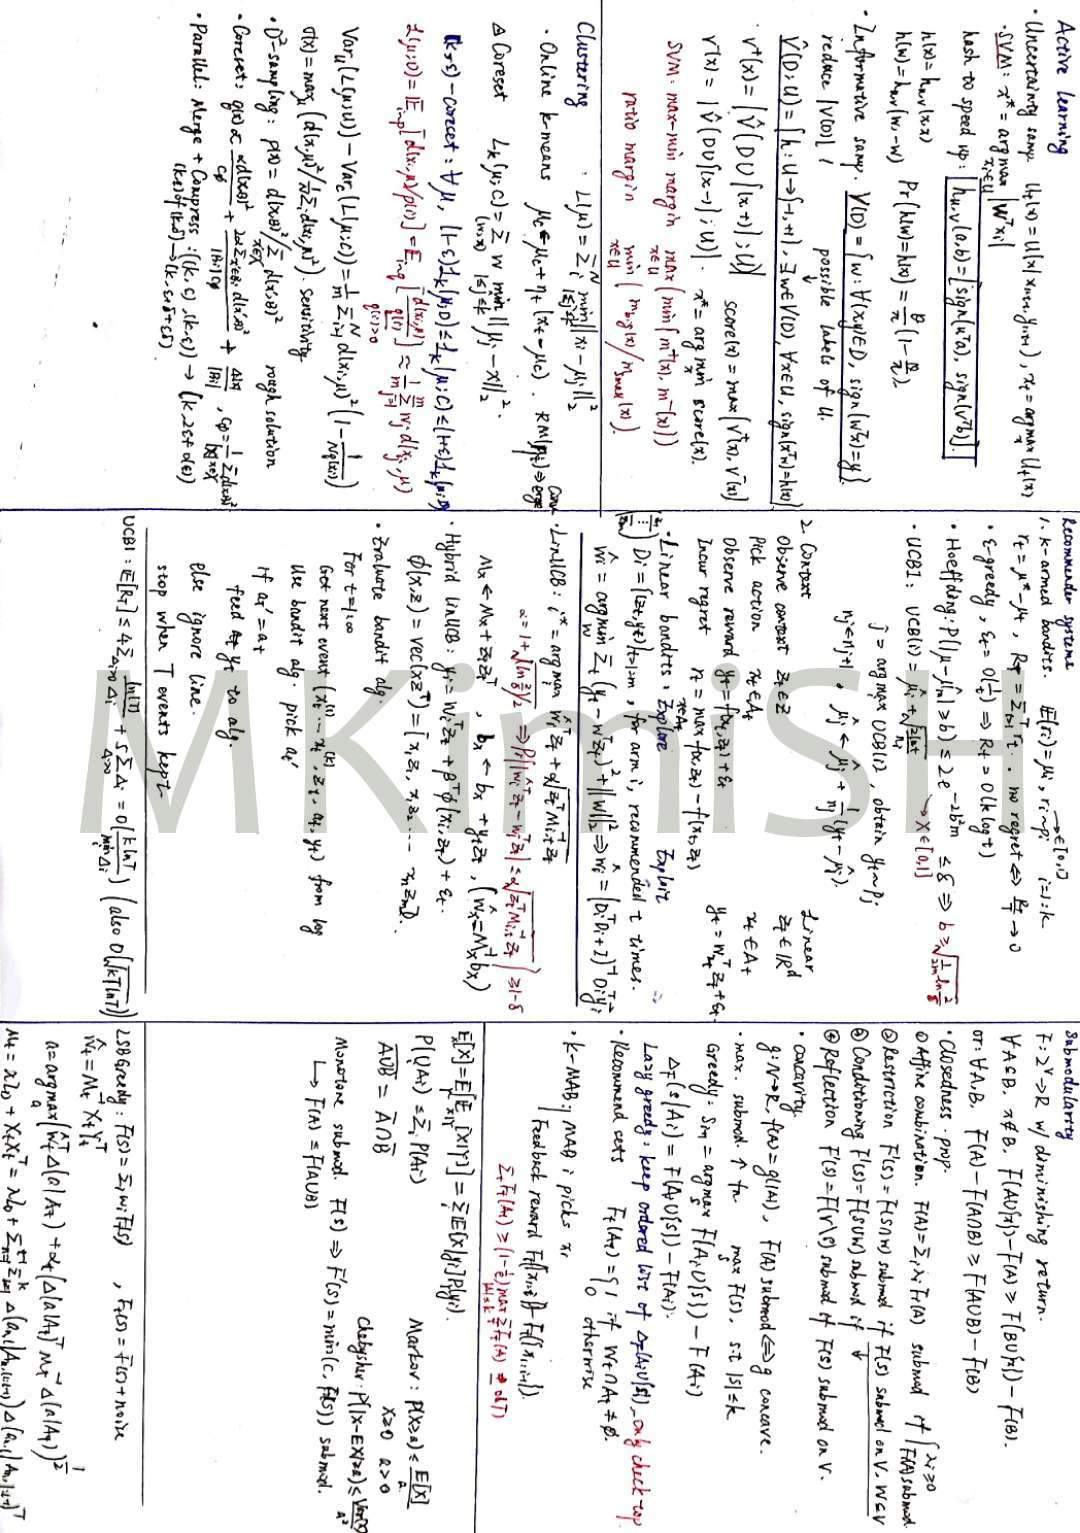 Active learning
· Uncertainty samp U_t(x) = U(x| x_{1:t-1}, y_{1:t-1}), x_t = argmax_x U_t(x)
· SVM: x* = argmax_{x_i∈U} |w^T x_i|
hash to speed up: h_{u,v}(a,b) = [sign(u^Ta), sign(v^Tb)].
h(x) = h_{u,v}(x,x)
h(w) = h_{u,v}(w,-w) Pr(h(w)=h(x)) = θ/π (1-θ/π)
· Informative samp. V(D) = {w: ∀(x,y)∈D, sign(w^Tx)=y}
reduce |V(D)| ! possible labels of U.
V̂(D;U) = {h: U→{-1,+1}, ∃w∈V(D), ∀x∈U, sign(x^Tw)=h(x)}
v⁺(x) = |V̂(D∪{(x,+)};U)|
score(x) = max(v⁺(x), v⁻(x))
v⁻(x) = |V̂(D∪{(x,-)};U)|. x* = argmin_x score(x).
SVM: max-min margin max_{x∈U} (min{m⁺(x), m⁻(x)})
ratio margin min_{x∈U} (m_big(x)/m_small(x)).
Clustering : L(μ) = Σ_i^N min_{1≤j≤k} ||x_i - μ_j||_2^2
· Online k-means μ_c ← μ_c + η_t(x_t - μ_c). RM(η_t) ⇒ converge
△ Coreset L_k(μ;C) = Σ_{(w,x)} w min_{1≤j≤k} ||μ_j - x||_2^2.
(k,ε)-coreset: ∀μ, (1-ε)L_k(μ;D) ≤ L_k(μ;C) ≤ (1+ε)L_k(μ;D)
L(μ;D) = E_{i~p}[d(x_i,μ)/p(i)] = E_{i~q}[d(x_i,μ)/q(i)] ≈ 1/m Σ_{j=1}^m w_j d(x_{i_j},μ)
q(i)>0
Var_u(L(μ;U)) - Var_c(L(μ;C)) = 1/m Σ_{i=1}^N d(x_i,μ)^2 (1 - 1/(Nq(x_i)))
σ(x) = max_μ (d(x,μ)^2 / 1/N Σ_i d(x_i,μ)^2). sensitivity
· D²-sampling: p(x) = d(x,B)^2 / Σ_{x'∈X} d(x',B)^2 rough solution
· Coreset: q(x) ∝ αd(x,B)^2/cφ + 2αΣ_{x'∈Bi} d(x',B)^2/|Bi|cφ + 4|X|/|Bi|, cφ = 1/|X| Σ_{x∈X} d(x,B)^2
· Parallel: Merge + Compress: ((k,ε),(k,ε)) → (k,2ε+o(ε))
(k,ε) of (k,δ) → (k,ε+δ+εδ)
Recommender systems
1. k-armed bandits. E(r_i) = μ_i, r_i~p_i →∈[0,1] i=1:k
r_t = μ* - μ_t, R_T = Σ_{t=1}^T r_t. no regret ⇔ R_T/T → 0
· ε-greedy, ε_t = O(1/t) ⇒ R_t = O(k log t)
· Hoeffding: P(|μ-μ̂_m| ≥ b) ≤ 2e^{-2b²m} ≤ δ ⇒ b ≥ √(1/2m ln 2/δ)
X∈[0,1]
· UCB1: UCB(i) = μ̂_i + √(2lnt/n_i)
j = argmax_i UCB(i), obtain y_t~p_j
n_j ← n_j+1, μ̂_j ← μ̂_j + 1/n_j (y_t - μ̂_j).
2. Context Linear
Observe context z_t∈Z z_t∈R^d
Pick action x_t∈A_t x_t∈A_t
Observe reward y_t = f(x_t,z_t)+ε_t y_t = w_{x_t}^T z_t + ε_t
Incur regret r_t = max_{x∈A_t} f(x,z_t) - f(x_t,z_t)
· Linear bandits: Explore Exploit
D_i = {(z_t,y_t)}_{t=1:m}, for arm i, recommended t times.
ŵ_i = argmin_w Σ_t (y_t - w^Tz_t)^2 + ||w||_2^2 ⇒ ŵ_i = (D_i^TD_i+I)^{-1} D_i^T y_i
· LinUCB: i* = argmax_i ŵ_i^T z_t + α√(z_t^T M_{i,t}^{-1} z_t)
α = 1+√(ln(2/δ)/2) ⇒ Pr{|ŵ_i^T z_t - w_i^T z_t| ≤ α√(z_t^T M_{i,t}^{-1} z_t)} ≥ 1-δ
M_x ← M_x + z_t z_t^T, b_x ← b_x + y_t z_t, (ŵ_x = M_x^{-1} b_x)
· Hybrid LinUCB: y_i = w_i^T z_t + β^T φ(x_i,z_t) + ε_t.
φ(x,z) = vec(xz^T) = [x_1z_1, x_1z_2 .... x_nz_m].
· Evaluate bandit alg.
For t=1:∞
Get next event (x_t^{(1)} ... x_t^{(k)}, z_t, a_t, y_t) from log
Use bandit alg. pick a_t'
if a_t' = a_t
feed y_t to alg.
else ignore line.
stop when T events kept
UCB1: E[R_T] ≤ 4Σ_{Δi>0} ln(T)/Δ_i + 5Σ_{Δi>0} Δ_i = O(k lnT / min_i Δ_i) (also O(√(kT lnT)))
Submodularity
F: 2^V→R w/ diminishing return.
∀A⊆B, x∉B, F(A∪{x})-F(A) ≥ F(B∪{x})-F(B).
or: ∀A,B, F(A)-F(A∩B) ≥ F(A∪B)-F(B)
· Closedness prop.
① Affine combination. F(A)=Σ_i λ_i F_i(A) submod if { λ_i≥0 F_i(A) submod.
② Restriction F'(S)=F(S∩W) submod if F(S) submod on V, W⊆V
③ Conditioning F'(S)=F(S∪W) submod if ↓
④ Reflection F'(S)=F(V\S) submod if F(S) submod on V.
· concavity.
g: N→R, F(A)=g(|A|), F(A) submod ⇔ g concave.
· max. submod. ↑ fn. max_S F(S), s.t |S|≤k
Greedy: S_{i+1} = argmax_s F(A_i∪{s}) - F(A_i)
Δ_F(s|A_i) = F(A_i∪{s}) - F(A_i).
Lazy greedy: keep ordered list of Δ_F(A_i∪{s}), only check top.
· Recommend sets F_t(A_t) = { 1 if W_t∩A_t ≠ ∅.
0 otherwise
· K-MAB: MAB i picks x_i
Feedback reward F_t({x_{1:i}}) - F_t({x_{1:i-1}}).
Σ_t F_t(A_t) ≥ (1-1/e) max_{|A|≤k} Σ_t F_t(A) - o(T)
E_x[X] = E_Y[E_{X|Y}[X|Y]] = Σ_i E(X|y_i)P_Y(y_i).
P(∪A_i) ≤ Σ_i P(A_i) Markov: P(X≥a) ≤ E[X]/a
X≥0 a>0
A∪B = Ā∩B̄
Chebyshev: P(|X-EX|≥a) ≤ Var(X)/a²
Monotone submod. F(S) ⇒ F'(S)=min(c, F(S)) submod.
↳ F(A) ≤ F(A∪B)
LSBGreedy: F(S) = Σ_i w_i F_i(S), F_t(S) = F(S)+noise
ŵ_t = M_t^{-1} X_t Y_t^T
a = argmax_a (ŵ_t^T Δ(a|A_t) + α_t(Δ(a|A_t)^T M_t^{-1} Δ(a|A_t))^{1/2}
M_t = λI_D + X_tX_t^T = λI_D + Σ_{n=1}^{t-1} Σ_{i=1}^k Δ(a_{n,i}|A_{n,(1:i-1)}) Δ(a_{n,i}|A_{n,1:i-1})^T
MkiniSH